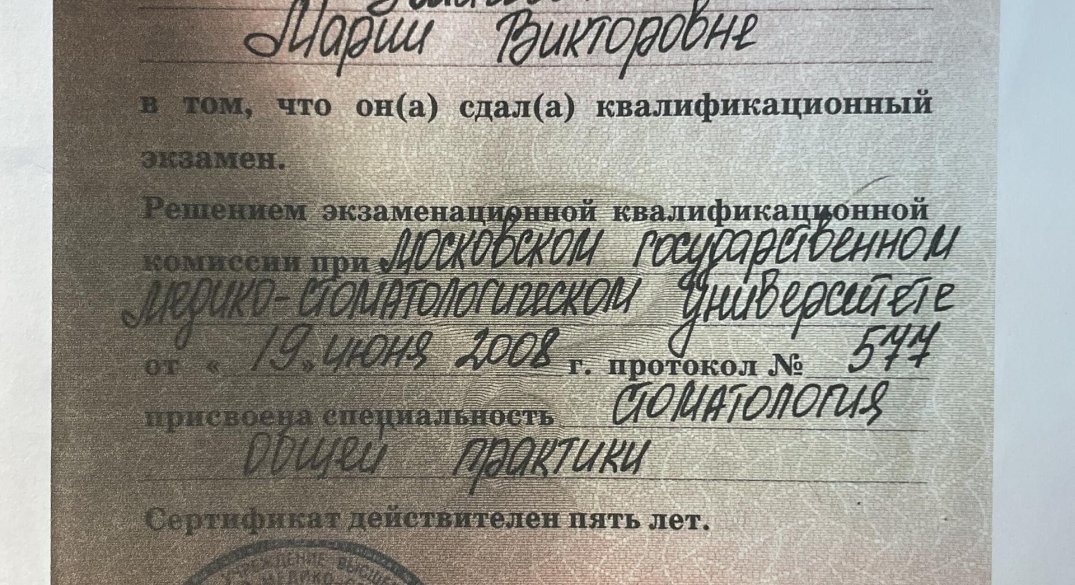 Марии Викторовне
в том, что он(а) сдал(а) квалификационный
экзамен.
Решением экзаменационной квалификационной
комиссии при Московском государственном
медико-стоматологическом университете
от « 19 » июня 2008 г. протокол № 577
присвоена специальность стоматология
общей практики
Сертификат действителен пять лет.
УЧРЕЖДЕНИЕ ВЫСШЕГО
МЕДИКО-